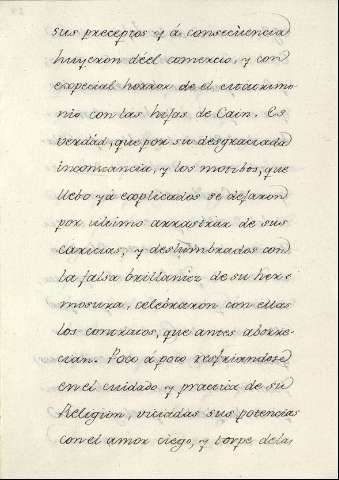 sus preceptos y á consecüencia
huyeron déel comercio, y con
especial horror de el matrimo
nio con las hijas de Cain. Es
verdad, que por su desgraciada
inconstancia, y los motibos, que
llebo yá explicados se dejaron
por ultimo arrastrar de sus
caricias, y deslumbrados con
la falsa brillantez de su her=
mosura, celebraron con ellas
los contratos, que antes aborre-
cian. Poco á poco resfriandose
en el cuidado y practica de su
Religion, viciadas sus potencias
con el amor ciego, y torpe de las